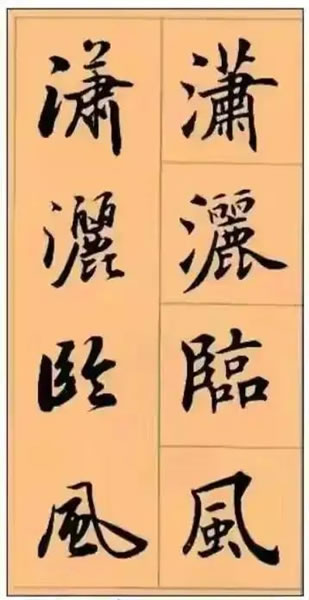 瀟灑臨風
瀟灑臨風